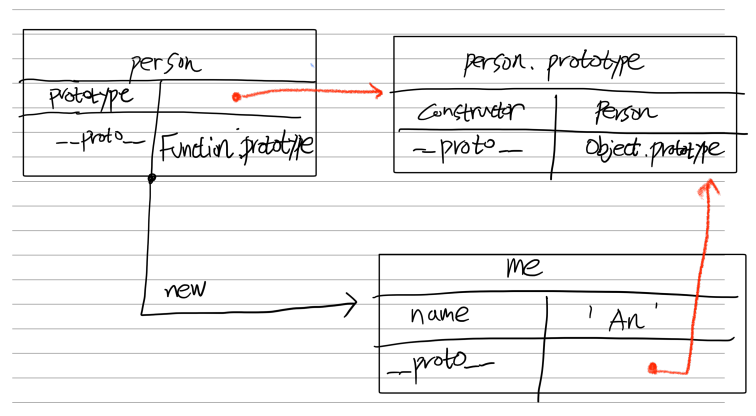 person
prototype
__proto__ Function.prototype
person.prototype
Constructor Person
__proto__ Object.prototype
new
me
name 'An'
__proto__